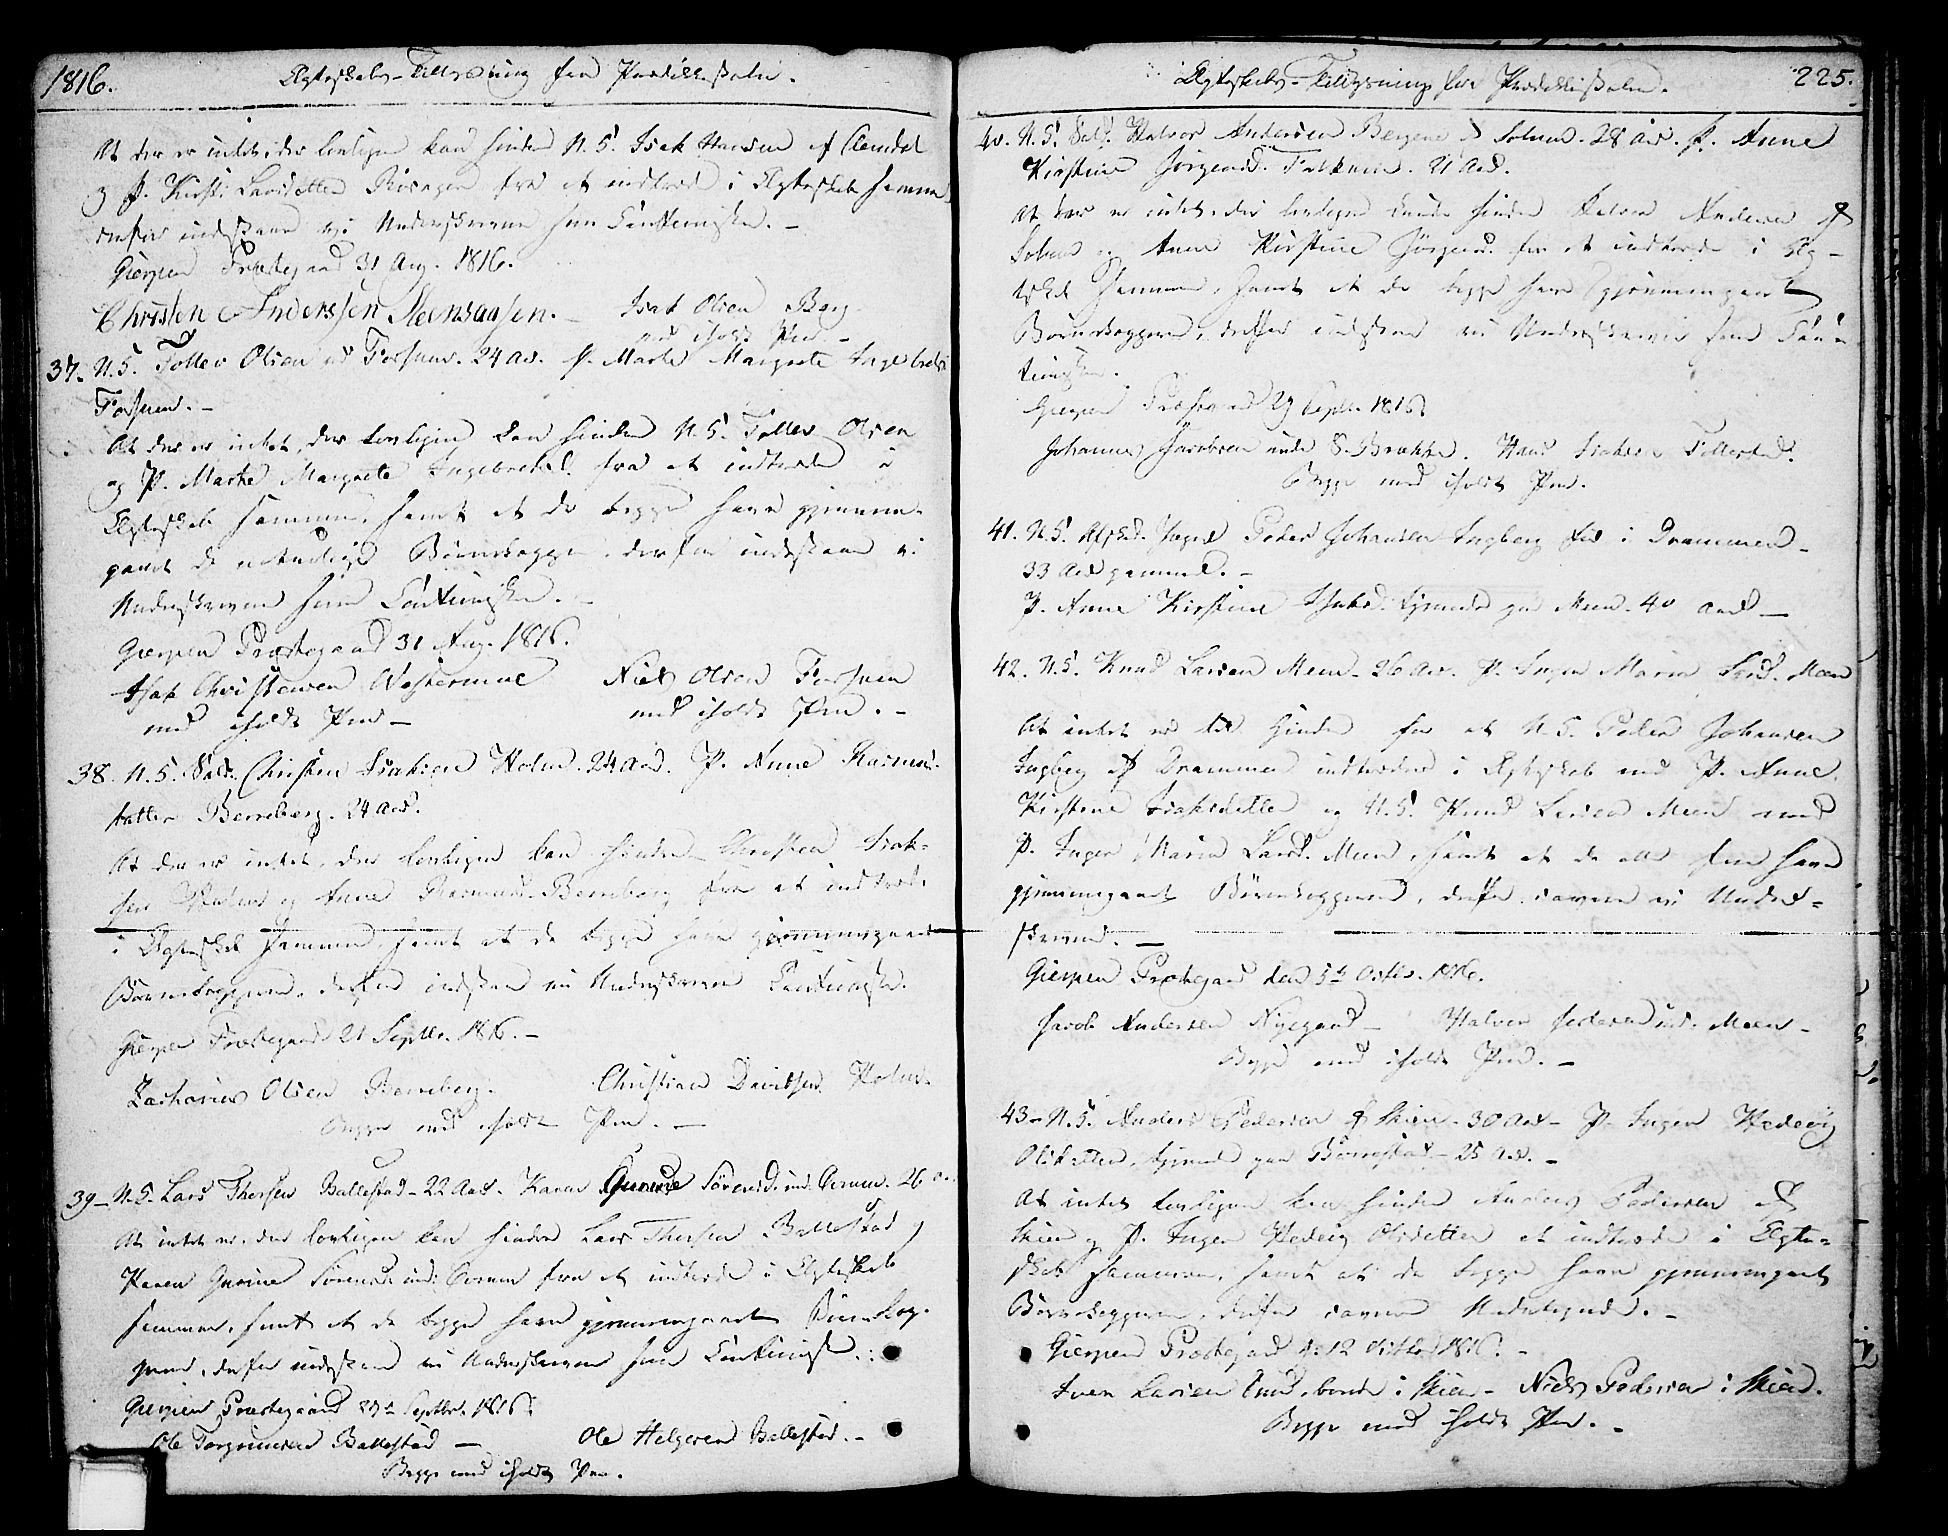 1816. Ægteskabs-Tillysning fra Prædikestolen.
At der er intet, der lovligen kan hindre U. K. Isak Hansen af
og P. Kirsti Larsdatter fra at indtræde i Ægteskab sammen,
derfor indestaae vi Underskrevne som Cautionister. -
Gierpen Præstegaard 31 Aug. 1816.
Christen Anderssen Steensaasen. - Isak Olsen Berg
med iholdt Pen -
37. U. K. Tollev Olsen Fossum. 24 Aar. P. Marte Margrete Ingebretsd.
Fossum. -
At der er intet, der lovligen kan hindre U. K. Tollev Olsen
og P. Marte Margrete Ingebretsd. fra at indtræde i
Ægteskab sammen, samt at de begge have gjennem-
gaaet de naturlige Børnekopper, derfor indestaae vi
Underskrevne som Cautionister. -
Gierpen Præstegaard 31 Aug. 1816.
Isak Christensen Niels Olsen Fossum
med iholdt Pen - med iholdt Pen. -
38. U. K. Sold. Christen Isaksen Holm. 24 Aar. P. Anne Rasmus-
datter Berreberg. 24 Aar.
At der er intet, der lovligen kan hindre Christen Isak-
sen Holm og Anne Rasmusd. Berreberg fra at indtræde
i Ægteskab sammen, samt at de begge have gjennemgaaet
Børnekopperne, derfor indestaae vi Underskrevne Cautionister.
Gierpen Præstegaard 21 Septbr. 1816. -
Zacharias Olsen Berreberg. Christian Davidsen Holm.
Begge med iholdt Pen. -
39 - U. K. Lars Thorsen Ballestad - 22 Aar. Karen Gurine Sørensd. 26 Aar
At intet er, der lovligen kan hindre Lars Thorsen Ballestad og
Karen Gurine Sørensd. fra at indtræde i Ægteskab
sammen, samt at de begge have gjennemgaaet Børnekop-
perne, derfor indestaae vi Underskrevne som Cautionist.
Gierpen Præstegaard Septbr. 1816.
Ole Torgrimsen Ballestad - Ole Helgesen Ballestad. -
Begge med iholdt Pen.
Ægteskabs-Tillysning fra Prædikestolen. 225.
40. U. K. Sold. Halvor Andersen af Solum. 28 Aar. P. Anne
Kirstine Jørgensd. Falkum. 21 Aar.
At der er intet, der lovligen kunde hindre Halvor Andersen af
Solum og Anne Kirstine Jørgensd. fra at indtræde i Æg-
teskab sammen, samt at de begge have gjennemgaaet
Børnekopperne, derfor indestaae vi Underskrevne som Cau-
tionister.
Gierpen Præstegaard Septbr. 1816.
Johannes Jacobsen Hans Tollestad.
Begge med iholdt Pen.
41. U. K. Afsked. Peder Johansen Ingberg i Drammen -
33 Aar gammel. -
P. Anne Kirstine Isaksd. tjenende paa Meen. 40 Aar -
42. U. K. Knud Larsen Meen - 26 Aar. P. Inger Maria Larsd. Meen
At intet er til Hinder for at U. K. Peder Johansen
Ingberg af Drammen indtræder i Ægteskab med P. Anne
Kirstine Isaksdatter og U. K. Knud Larsen Meen med
P. Inger Maria Larsd. Meen, samt at de alle have
gjennemgaaet Børnekopperne, derfor caverer vi Under-
skrevne. -
Gierpen Præstegaard den 5te Octbr. 1816.
Jacob Andersen Nygaard - Halvor Pedersen Meen -
Begge med iholdt Pen. -
43 - U. K. Anders Pedersen af Skien - 30 Aar - P. Inger Hedevig
Olsdatter, tjenende paa Borgestad - 25 Aar. -
At intet lovligen kan hindre Anders Pedersen af
Skien og P. Inger Hedevig Olsdatter at indtræde i Ægte-
skab sammen, samt at de begge have gjennemgaaet
Børnekopperne, derfor caverer Undertegnede. -
Gierpen Præstegaard d. 12 Octbr. 1816. -
Iver Larsen i Skien - Niels Pedersen i Skien.
Begge med iholdt Pen. -